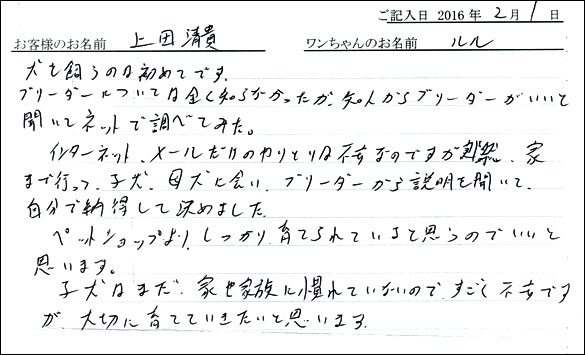 ご記入日 2016 年 2 月 1 日
お客様のお名前 上田 清貴 ワンちゃんのお名前 ルル
犬を飼うのは初めてです。
ブリーダーについては全く知らなかったが、知人からブリーダーがいいと
聞いてネットで調べてみた。
インターネット、メールだけのやりとりは不安なのですが、家
まで行って、子犬、母犬に会い、ブリーダーから説明を聞いて、
自分で納得して決めました。
ペットショップより、しっかり育てられていると思うのでいいと
思います。
子犬はまだ、家や家族に慣れていないので、すごく不安です
が、大切に育てていきたいと思います。